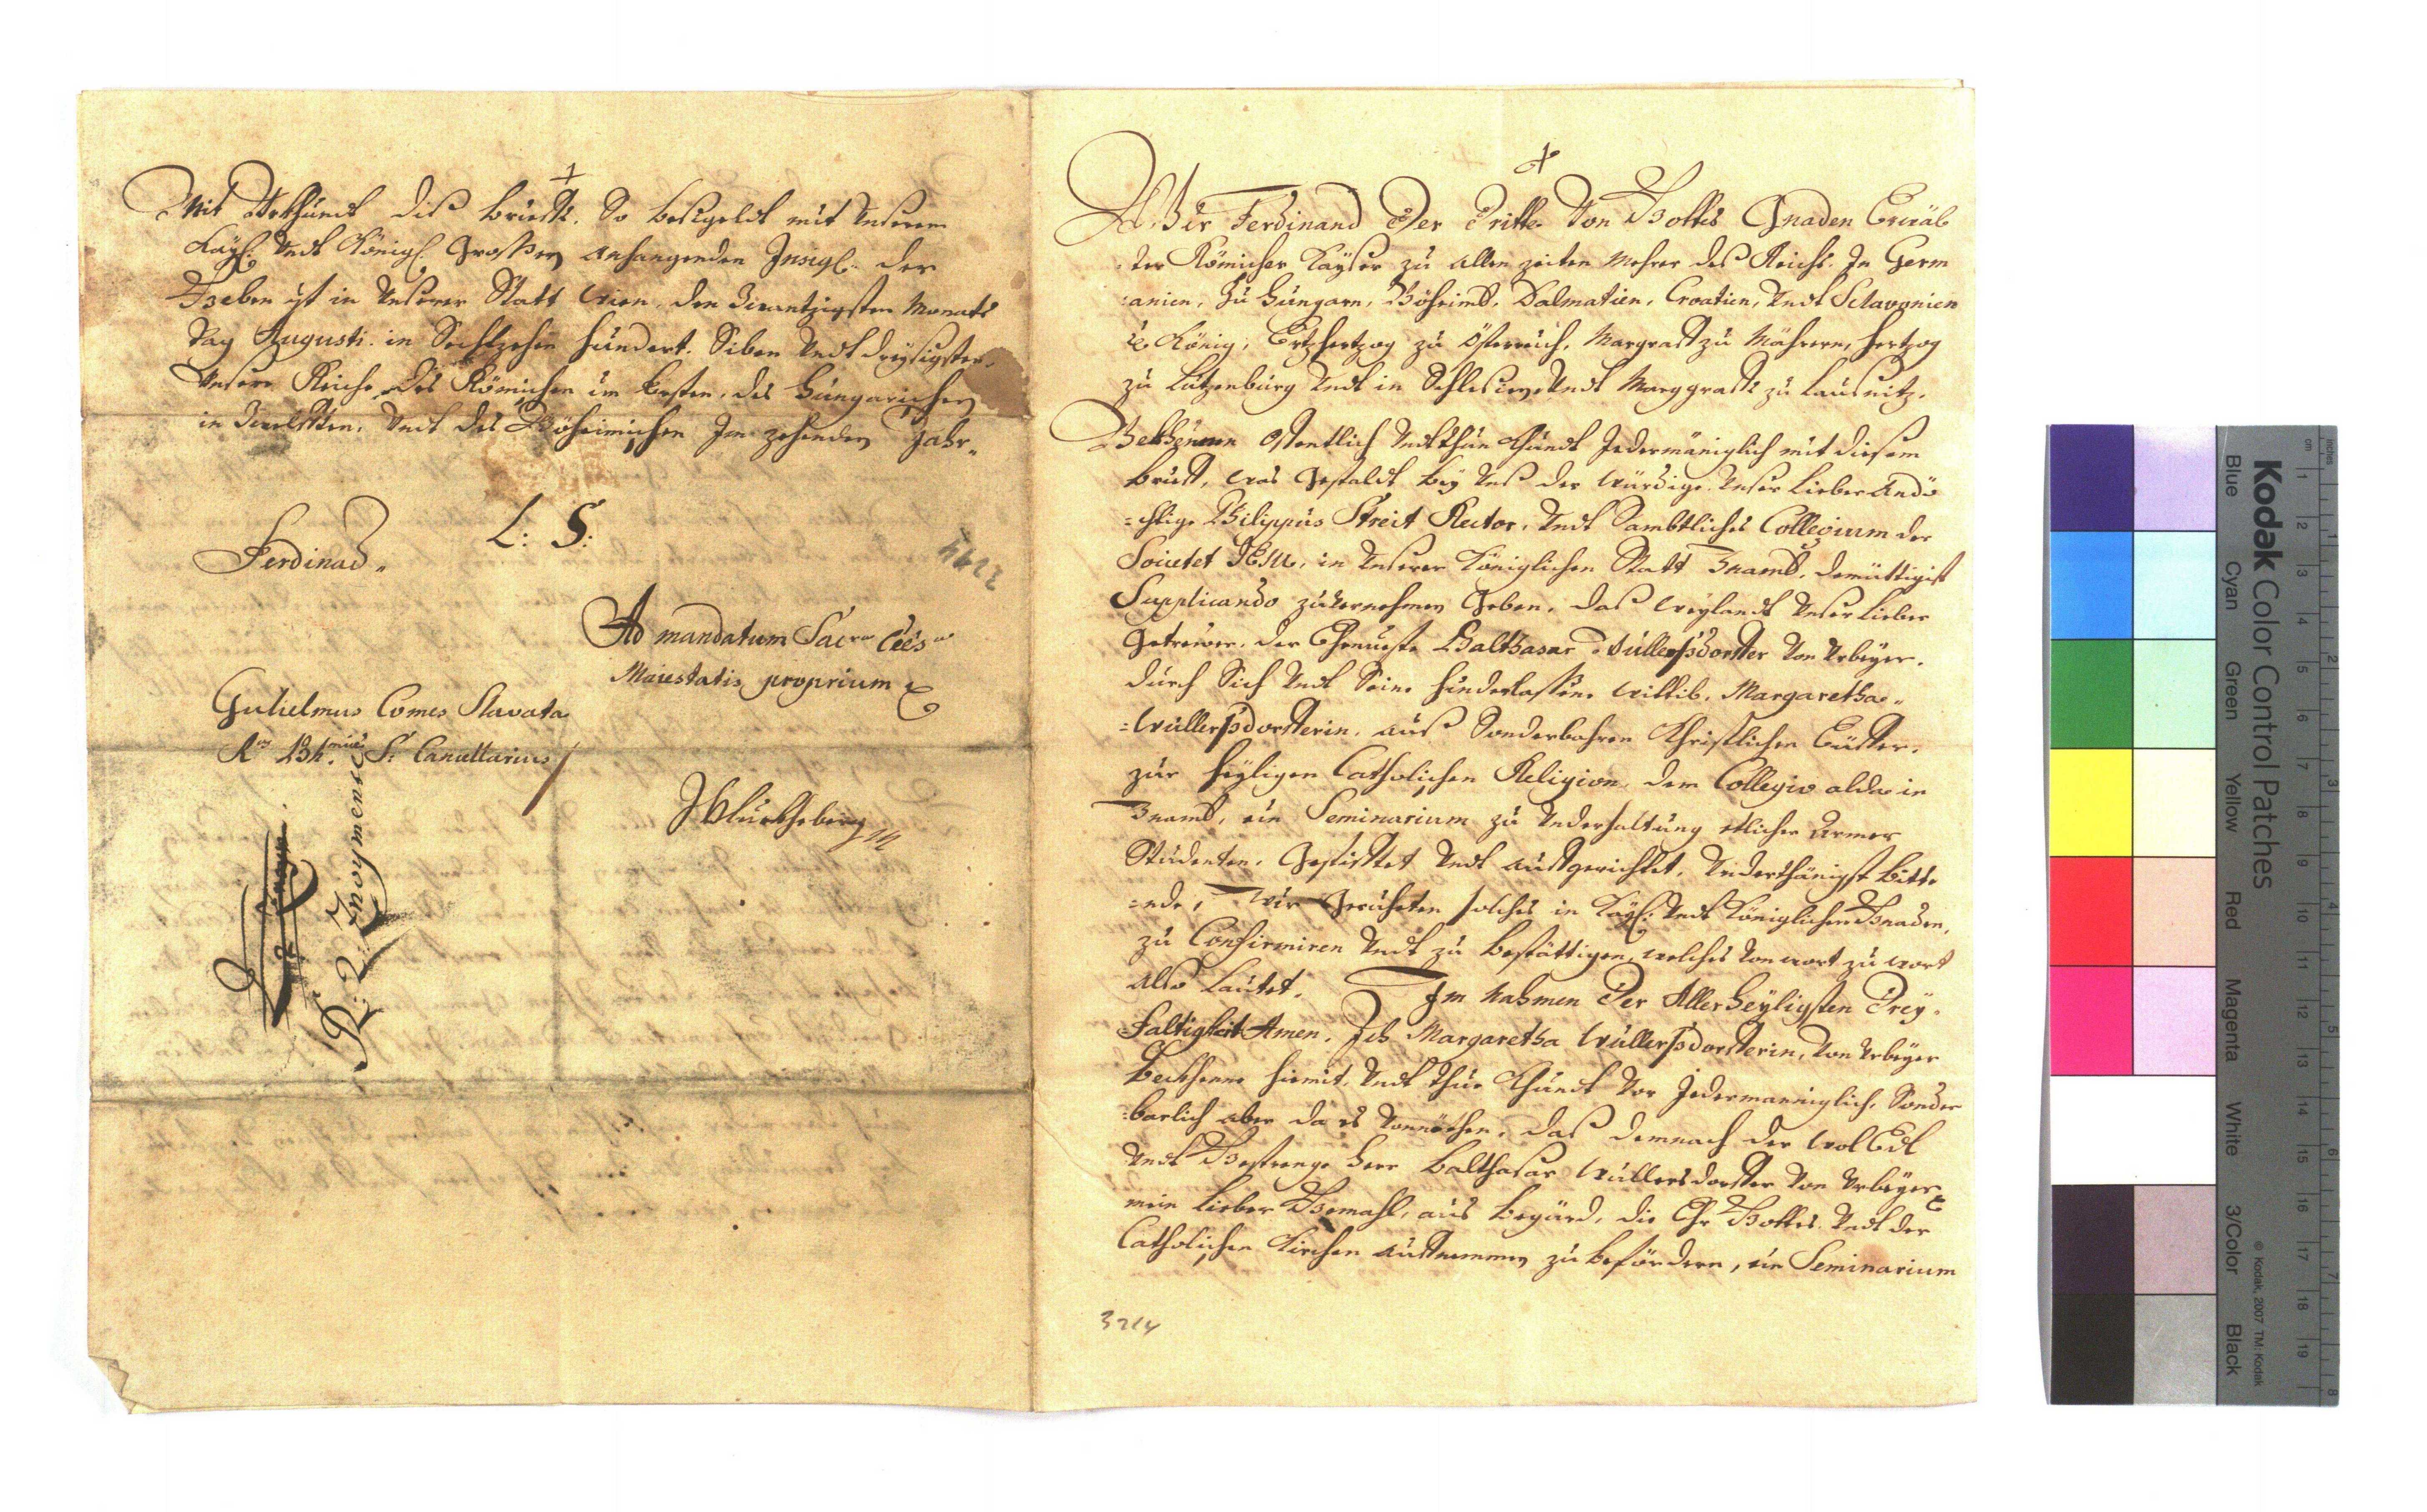 Mit Vrkhundt diß brieffs. So besigeldt mit Unserem
Kay: Undt Königl: Grossen anhangenden Insigl: der
Geben ist in Unserer Statt Wien, den Zwantzigsten Monats
Tag Augusti. in Sechszehen hundert. Siben Undt dreysigsten.
Unserer Reiche des Römischen im Ersten, des Hungarischen
in Zwelfften, Undt des Böheimischen Im zehenden Jahr.
Ferdinad.
L: S:
3214
Ad mandatum Sac Caes
Maiestatis proprium
Gulielmus Comes Slavata
R Bh: S: Cancellarius
Znoymense
Wir Ferdinand Der Dritte Von Gottes Gnaden Erwäl
ter Römischer Kayser zu allen zeiten Mehrer des Reichs. In Germ
anien, Zu Hungarn, Böheimb, Dalmatien, Croatien, Undt Sclavonien
König, Ertzhertzog zu Österreich, Margraff zu Mährern, Hertzog
zu Lutzenburg Undt in Schlesien, Undt Marggraff zu Lausnitz.
Bekhennen offentlich Undt thun khundt Jedermäniglich mit diesem
brieff, was gestaldt bey Uns der würdige Unser lieber Andä
=chtige Philippus Streit Rector, Undt Sambtliches Collegium der
Societet JEsu, in Unserer Königlichen Statt Znaimb, demüttigist
Supplicando zuvernehmen geben, daß weylandt Unser lieber
Getrewer, der Ehrnueste Balthasar Wüllerßdorffer Von Urbeyer.
durch Sich Undt Seine hinderlassene Wittib, Margaretha
=Wüllerßdorfferin, auß Sonderbahren Christlichen Eüffer,
zur heyligen Catholischen Religion, dem Collegio alda in
Znaimb, ein Seminarium zu Underhaltung etlicher Armer
Studenten, Gestifftet Undt auffgerichtet, Underthänigst bitte
=nde, Wir Geruheten solches in Kay: Undt Königlichen Gnaden,
zu Confirmiren Undt zu bestättigen, welches Von wort zu wort
also Lautet. Im Nahmen Der Allerheyligsten Drey
=faltigkeit Amen. Ich Margaretha Wüllerßdorfferin, Von Urbeyer
Bekhenne hiemit, Undt thue khundt Vor Jedermanniglich, Sonder
=barlich aber da es Vonnöthen, daß demnach der Wol Edl
Undt Gestrenge Herr Balthasar Wüllersdorffer Von Urbeyer
mein lieber Gemahl, aus begürd, die Ehr Gottes Undt der
Catholischen Kirchen auffnemmen zu befördern, ein Seminarium
3214
Kodak Color Control Patches
Blue Cyan Green Yellow Red Magenta White 3/Color Black
© Kodak, 2007 TM: Kodak
inches 1 2 3 4 5 6 7 8
cm 1 2 3 4 5 6 7 8 9 10 11 12 13 14 15 16 17 18 19